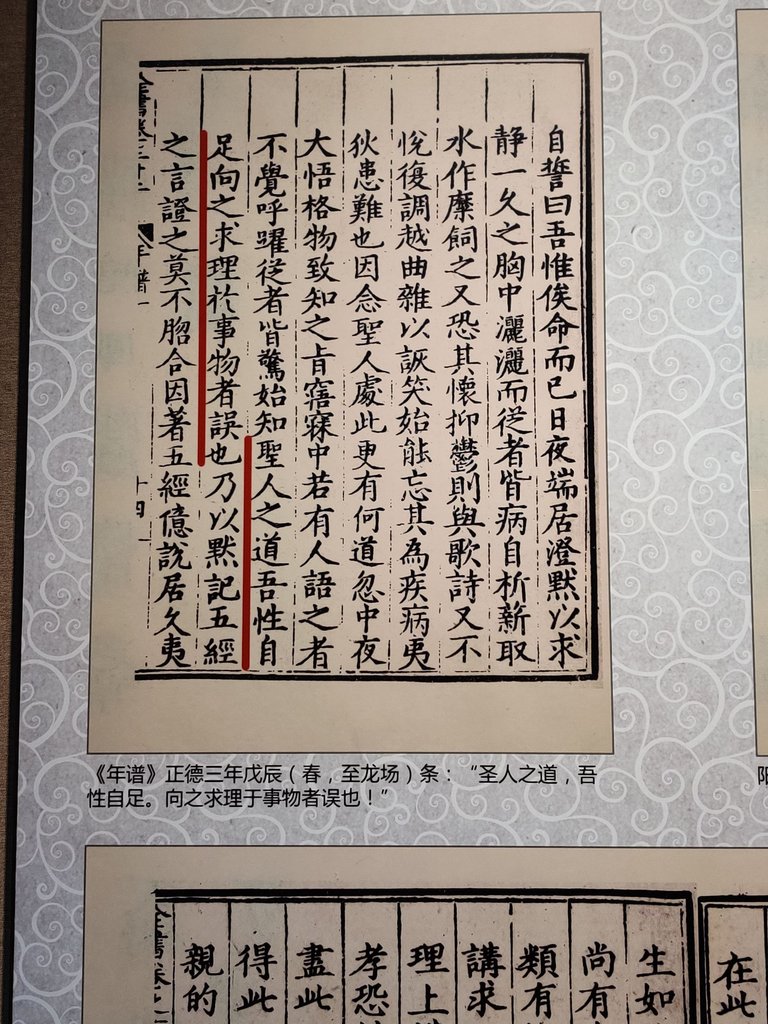 自誓曰吾惟俟命而已日夜端居澄默以求
静一久之胸中灑灑而從者皆病自析薪取
水作糜飼之又恐其懷抑鬱則與歌詩又不
悅復調越曲雜以詼笑始能忘其為疾病夷
狄患難也因念聖人處此更有何道忽中夜
大悟格物致知之旨寤寐中若有人語之者
不覺呼躍從者皆驚始知聖人之道吾性自
足向之求理於事物者誤也乃以默記五經
之言證之莫不脗合因著五經億說居久夷
全書卷三十二
年譜一
十四
《年谱》正德三年戊辰（春，至龙场）条：“圣人之道，吾
性自足。向之求理于事物者误也！”
在此
生如
尚有
類有
講求
理上
孝恐
盡此
得此
親的
全書卷之